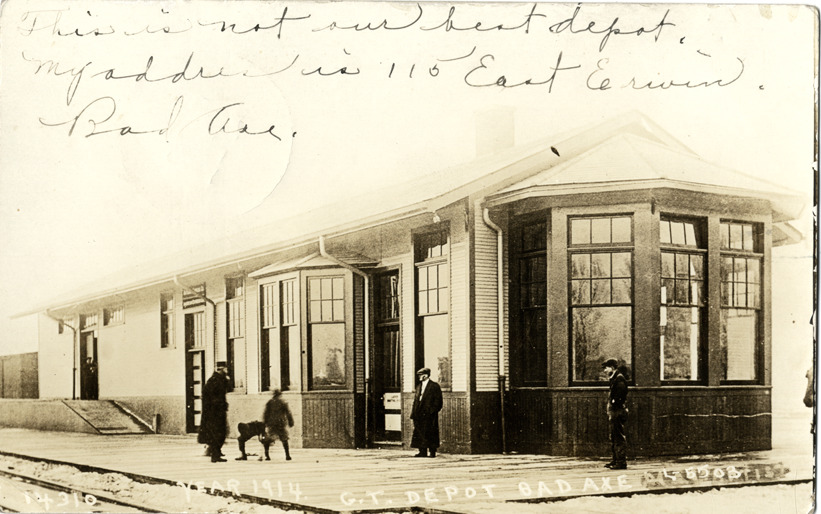 This is not our best depot.
My address is 115 East Erwin.
Bad Axe.
14310 YEAR 1914. G.T. DEPOT BAD AXE